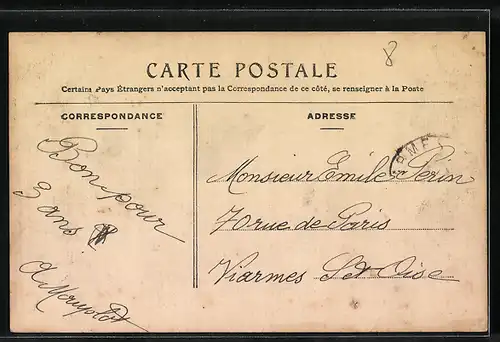 8
CARTE POSTALE
Certains Pays Étrangers n'acceptant pas la Correspondance de ce côté, se renseigner à la Poste
CORRESPONDANCE
Bon pour
3 ans
ADRESSE
Monsieur Emile Perin
70 rue de Paris
Viarmes Set Oise